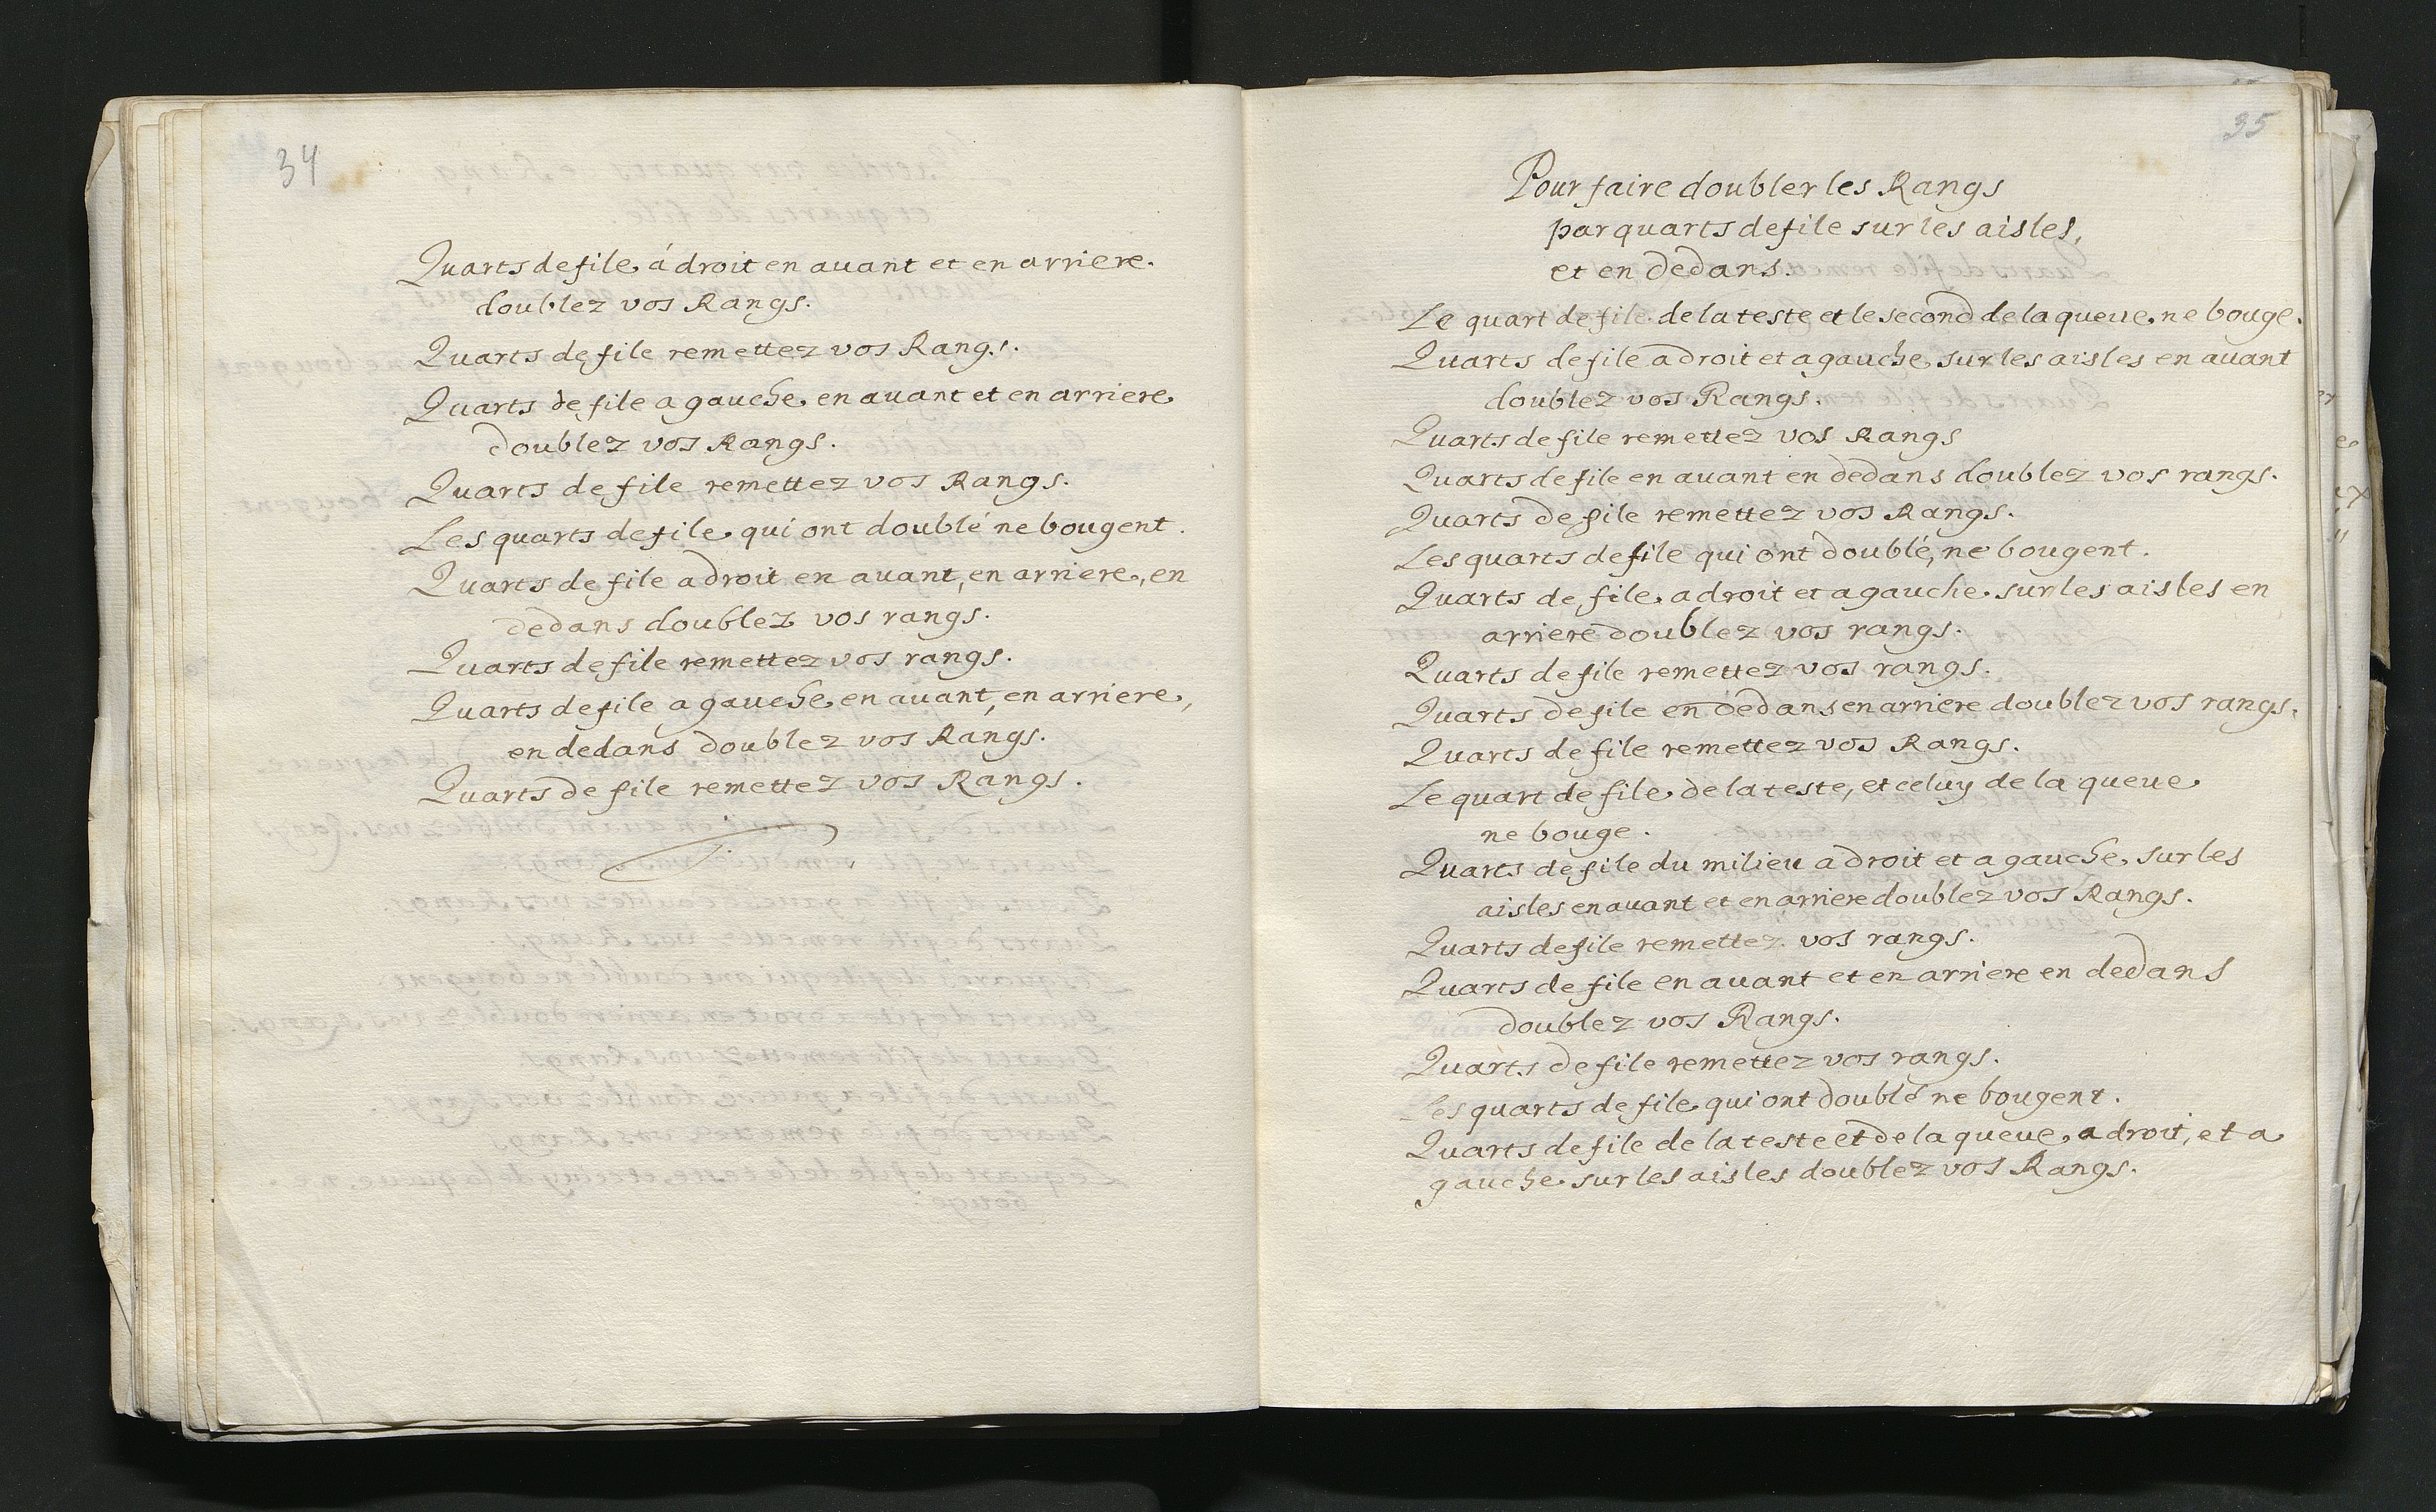 34
Quarts de file á droit en auant et en arriere.
doublez vos Rangs.
Quarts de file remettez vos Rangs.
Quarts de file a gauche en auant et en arriere
doublez vos Rangs.
Quarts de file remettez vos Rangs.
Les quarts de file qui ont doublé ne bougent.
Quarts de file a droit en auant, en arriere, en
dedans doublez vos rangs.
Quarts de file remettez vos rangs.
Quarts de file a gauche en auant, en arriere,
en dedans doublez vos Rangs.
Quarts de file remettez vos Rangs.
35
Pour faire doubler les Rangs
par quarts de file sur les aisles,
et en dedans.
Le quart de file de la teste et le second de la queue ne bouge.
Quarts de file a droit et a gauche sur les aisles en auant
doublez vos Rangs.
Quarts de file remettez vos Rangs
Quarts de file en auant en dedans doublez vos rangs.
Quarts de file remettez vos Rangs.
Les quarts de file qui ont doublé, ne bougent.
Quarts de file a droit et a gauche sur les aisles en
arriere doublez vos rangs.
Quarts de file remettez vos rangs.
Quarts de file en dedans en arriere doublez vos rangs.
Quarts de file remettez vos Rangs.
Le quart de file de la teste, et celuy de la queue
ne bouge.
Quarts de file du milieu a droit et a gauche sur les
aisles en auant et en arriere doublez vos Rangs.
Quarts de file remettez vos rangs.
Quarts de file en auant et en arriere en dedans
doublez vos Rangs.
Quarts de file remettez vos rangs.
Les quarts de file qui ont doublé ne bougent.
Quarts de file de la teste et de la queue a droit, et a
gauche sur les aisles doublez vos Rangs.